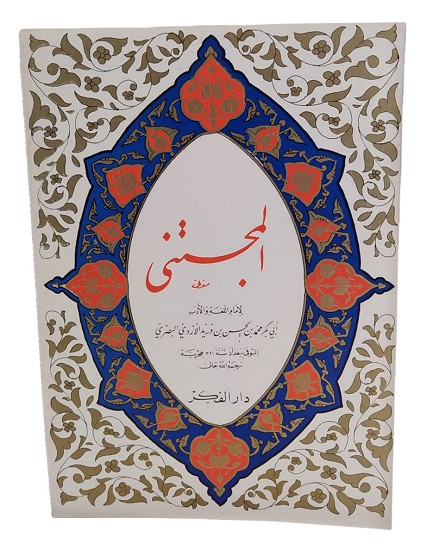 المجتنى
لإمام اللغة والأدب
أبي بكر محمد بن الحسن بن دريد الأزدي البصري
المتوفى ببغداد سنة ٣٢١ هجرية
رحمه الله تعالى
دار الفكر